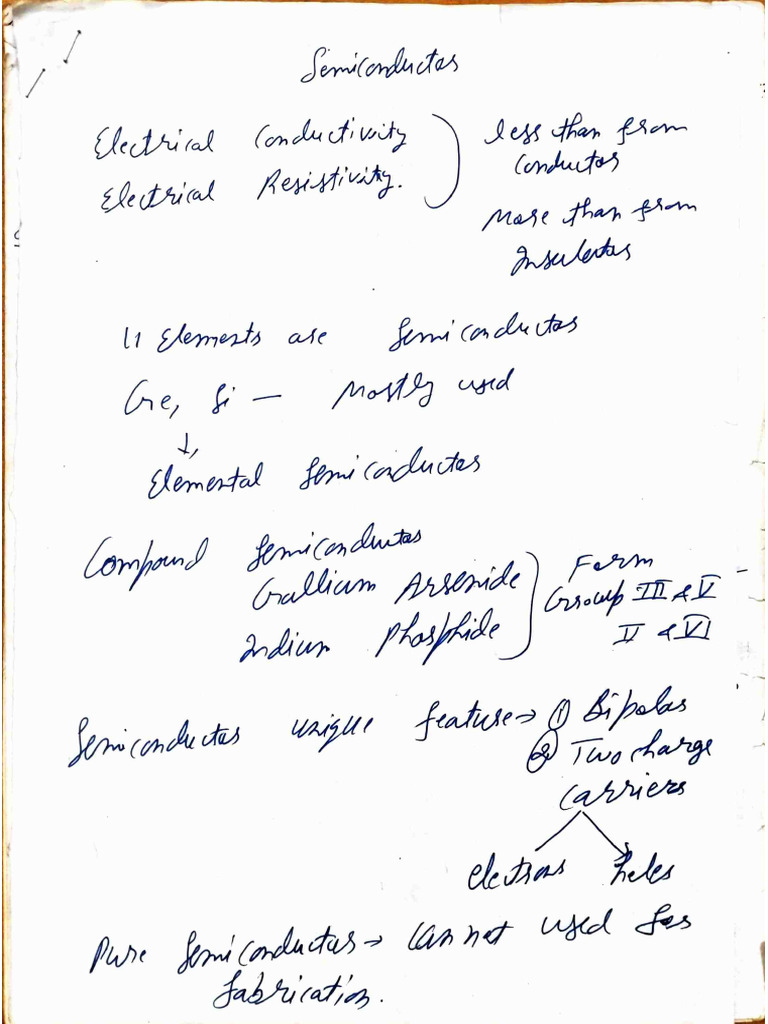 Semiconductor
Electrical Conductivity
Electrical Resistivity.
less than from
Conductor
More than from
Insulator
11 Elements are Semiconductor
Ge, Si — Mostly used
↓
Elemental Semiconductor
Compound Semiconductor
Gallium Arsenide
Indium Phosphide
Form
Group III & V
II & VI
Semiconductor unique feature → ① Bipolar
② Two charge
carriers
electrons holes
Pure Semiconductor → Can not used for
fabrication.